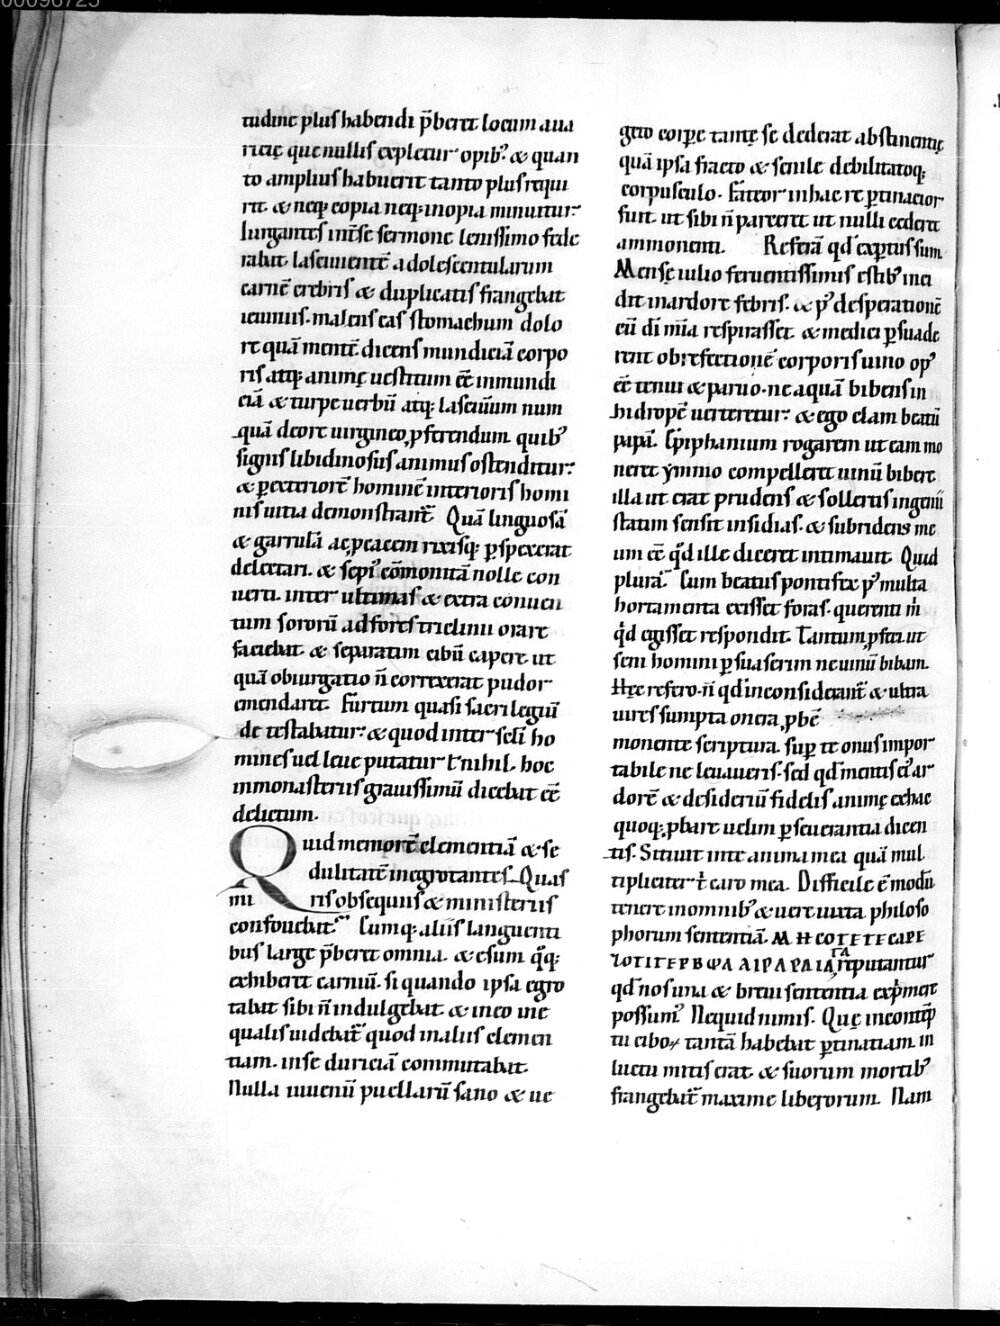 00098725
tudine plus habendi p̄beret locum aua
ritię que nullis expletur opib; & quan
to amplius habuerit tanto plus requi
rit. & neq; copia neq; inopia minuitur.
Iurgantes int̄ se sermone lenissimo fede
rabat. lasciuientē adolescentularum
carnē crebris & duplicatis frangebat
ieiuniis. malens eas stomachum dolo
re quā mentē. dicens mundiciā corpo
ris atq; animę uestitum eē inmundi
ciā & turpe uerbū atq; lasciuum num
quā de ore uirgineo, pferendum. quib;
signis libidinosus animus ostenditur.
& p exteriorē hominē interioris homi
nis uitia demonstrant̄. Quā linguosā
& garrulā ac, pcacem rixisq; pspexerat
delectari. & sepi' cōmonitā nolle con
uerti. inter ultimas & extra conuen
tum sororū ad fores triclinii orare
faciebat. & separatim cibū capere. ut
quā obiurgatio n̄ correxerat pudor
emendaret. Furtum quasi sacrilegiū
de testabatur. & quod inter sc̄li ho
mines uel leue putatur ł nihil. hoc
in monasteriis grauissimū dicebat eē
delictum.
Quid memorē clementiā & se
dulitatē in egrotantes. Quas
mi ris obsequiis & ministeriis
confouebat. Cumq; aliis languenti
bus large p̄beret omnia. & esum q̄q;
exhiberet carniū. si quando ipsa egro
tabat sibi n̄ indulgebat. & in eo ine
qualis uidebat̄ quod in aliis clemen
tiam. in se duriciā commutabat.
Nulla iuuenū puellarū sano & ue
geto corpe tantę se dederat abstinentię
quā ipsa fracto & senile debilitatoq;
corpusculo. Fateor in hac re ptinacior
fuit. ut sibi n̄ parceret ut nulli cederet
ammonenti. Referā qd̄ exptus sum
Mense iulio feruentissimis estib; inci
dit in ardorē febris. & p' desperationē
cū dī mīa respirasset. & medici psuade
rent ob refectionē corporis uino op'
eē tenui & paruo. ne aquā bibens in
hidropē uerteretur. & ego clam beatū
papā. Epiphanium rogarem ut eam mo
neret ymmo compelleret uinū bibere
illa ut erat prudens & sollertis ingenii
statim sensit insidias. & subridens me
um eē qd̄ ille diceret intimauit. Quid
plura. Cum beatus pontifex p' multa
hortamenta exisset foras. querenti m̄
qd̄ egisset respondit. Tantum, pfeci. ut
seni homini psuaserim ne uinū bibam.
Hęc refero. n̄ qd̄ inconsiderant̄ & ultra
uires sumpta onera, pbē
monente scriptura. sup te onus impor
tabile ne leuaueris. sed qd̄ mentis ei' ar
dorē & desideriū fidelis animę ex hac
quoq;, pbare uelim pseuerantia dicen
tis. Sitiuit in te anima mea quā mul
tipliciter t̄ caro mea. Difficile ē modū
tenere in omnib; & uere iuxta philoso
phorum sententiā. ΜΗ CΟΤΕΤΕ CΑΡΕ
ΓΑ
ΙΟΤΙΓΕΡΒΩΛΑΙΡΑΡΑΙΑ reputantur
qd̄ nos una & breui sententia expmere
possum'. Ne quid nimis. Quę in contēp
tu cibo tantā habebat ptinatiam. in
luctu mitis erat. & suorum mortib;
frangebat̄ maxime liberorum. Nam